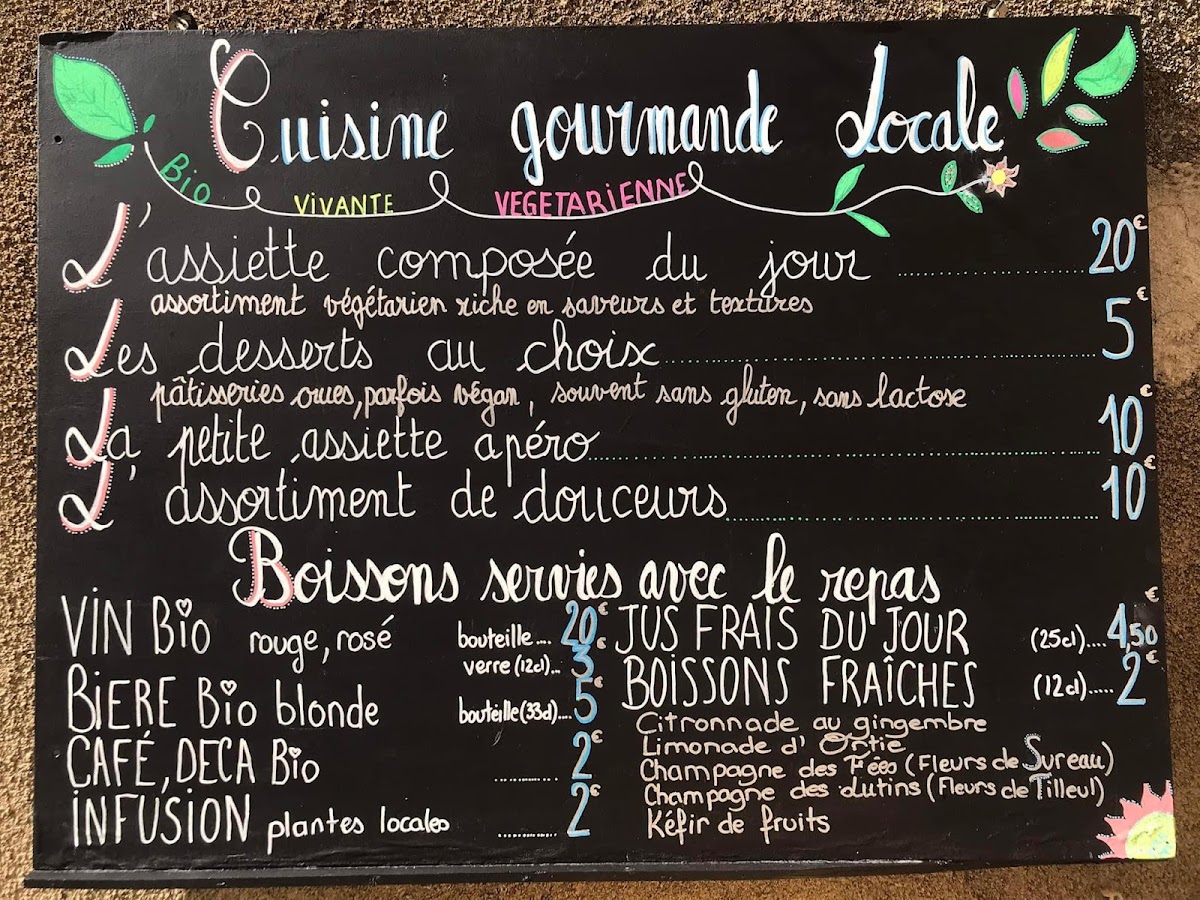 Cuisine gourmande Locale
Bio VIVANTE VEGETARIENNE
L'assiette composée du jour .......... 20€
assortiment végétarien riche en saveurs et textures
Les desserts au choix .......... 5€
pâtisseries crues, parfois végan, souvent sans gluten, sans lactose
La petite assiette apéro .......... 10€
L'assortiment de douceurs .......... 10€
Boissons servies avec le repas
VIN Bio rouge, rosé bouteille.... 20€
verre (12cl)... 3€
BIERE Bio blonde bouteille (33cl).... 5€
CAFÉ, DECA Bio .......... 2€
INFUSION plantes locales .......... 2€
JUS FRAIS DU JOUR (25cl).... 4,50€
BOISSONS FRAÎCHES (12cl)..... 2€
Citronnade au gingembre
Limonade d'Ortie
Champagne des Fées (Fleurs de Sureau)
Champagne des Lutins (Fleurs de Tilleul)
Kéfir de fruits